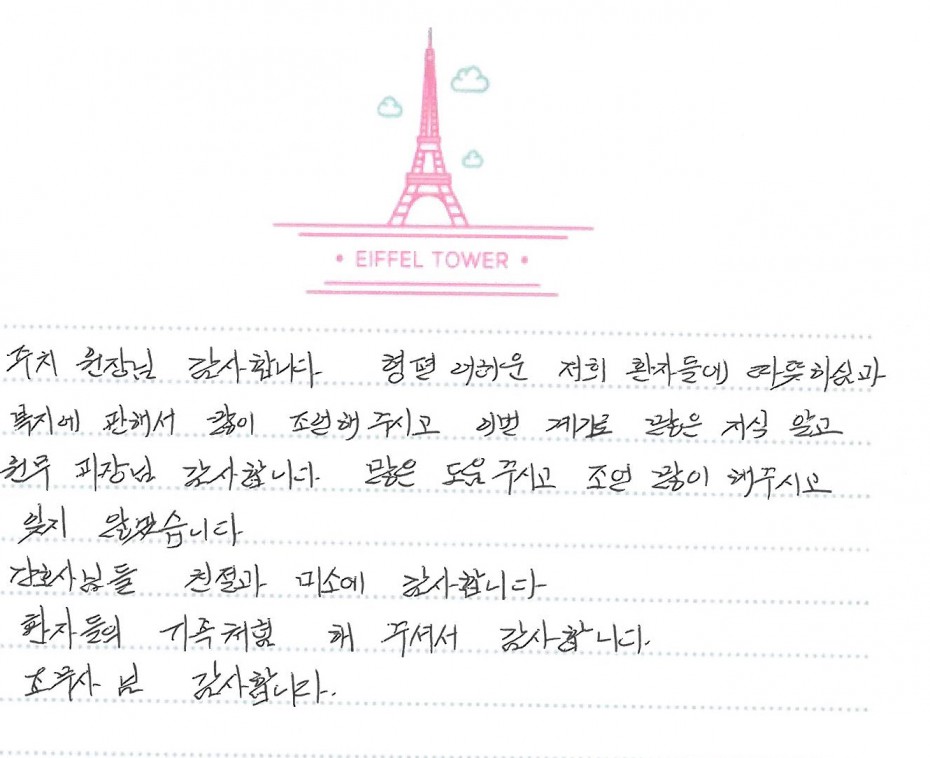 • EIFFEL TOWER •
주치 원장님 감사합니다. 형편 어려운 저희 환자들에 따뜻하심과
복지에 관해서 많이 조언해 주시고 이번 계기로 많은 지식 알고
원무 과장님 감사합니다. 많은 도움 주시고 조언 많이 해주시고
잊지 않겠습니다
간호사님들 친절과 미소에 감사합니다
환자들의 가족처럼 해 주셔서 감사합니다.
조무사 님 감사합니다.